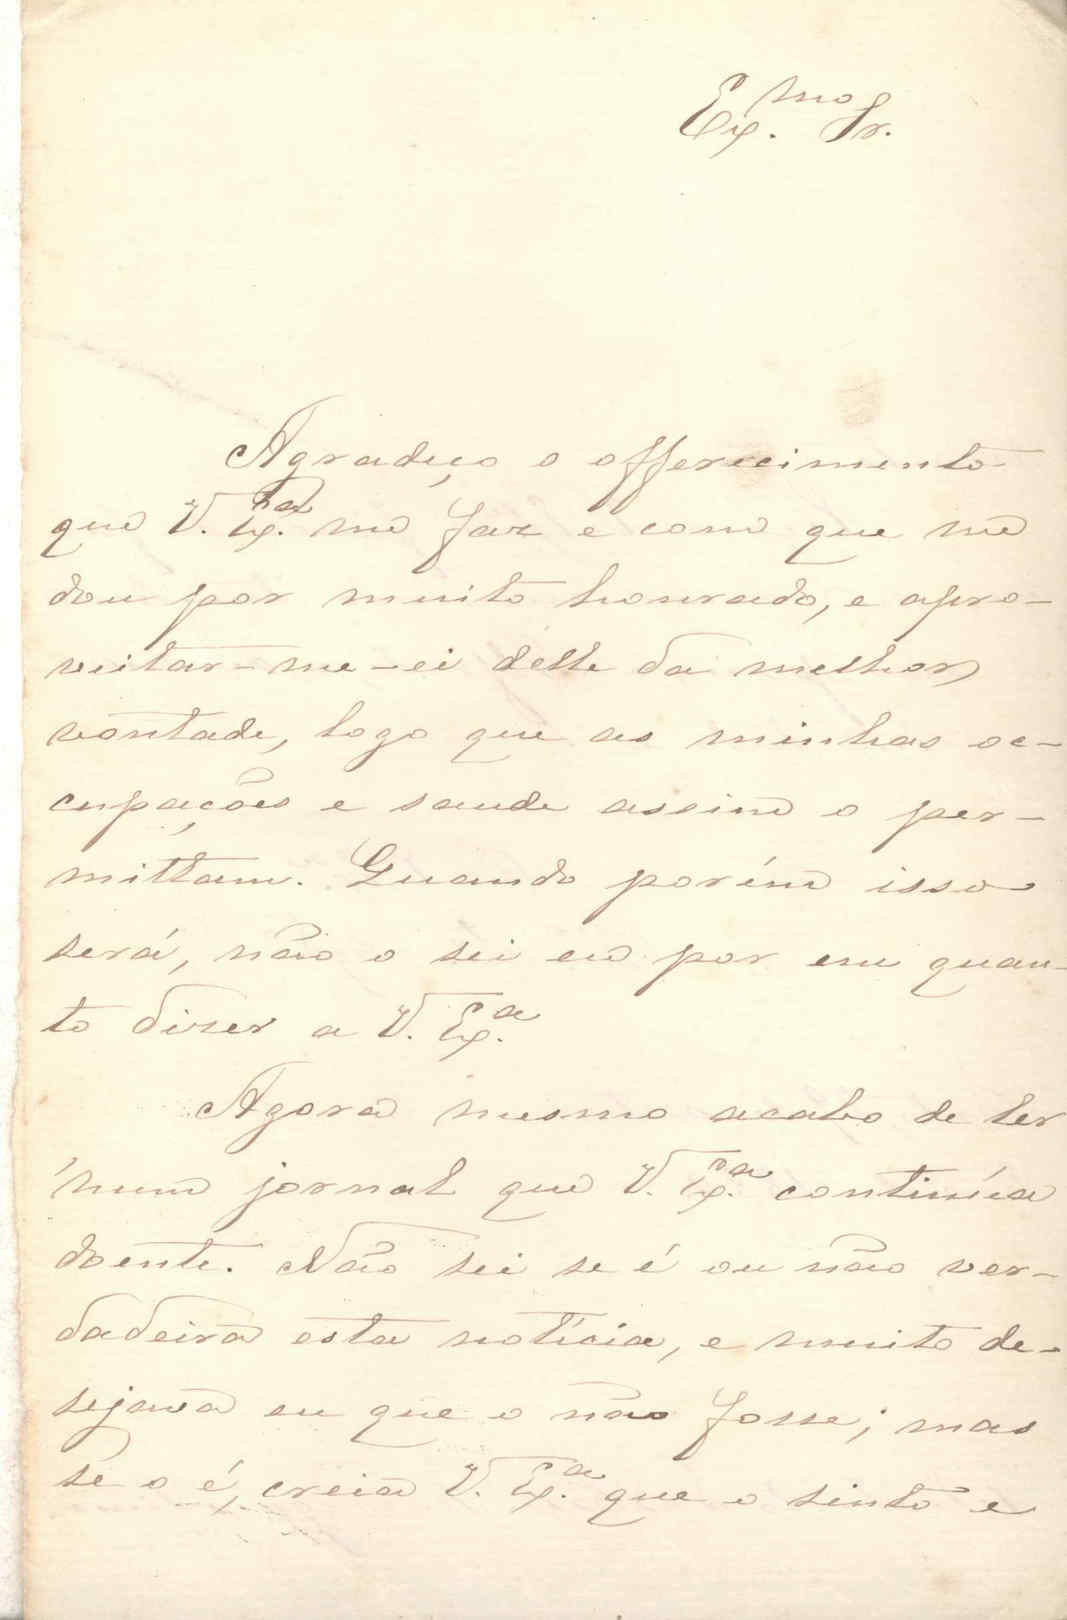 Ex.mo Sr.
Agradeço o offerecimento
que V. Ex.a me faz e com que me
dou por muito honrado, e apro-
veitar-me-ei delle da melhor
vontade, logo que as minhas oc-
cupações e saude assim o per-
mittam. Quando porém isso
será, não o sei eu por em quan-
to dizer a V. Ex.a
Agora mesmo acabo de ler
n'um jornal que V. Ex.a continúa
doente. Não sei se é ou não ver-
dadeira esta notícia, e muito de-
sejava eu que o não fosse; mas
se o é, creia V. Ex.a que o sinto e